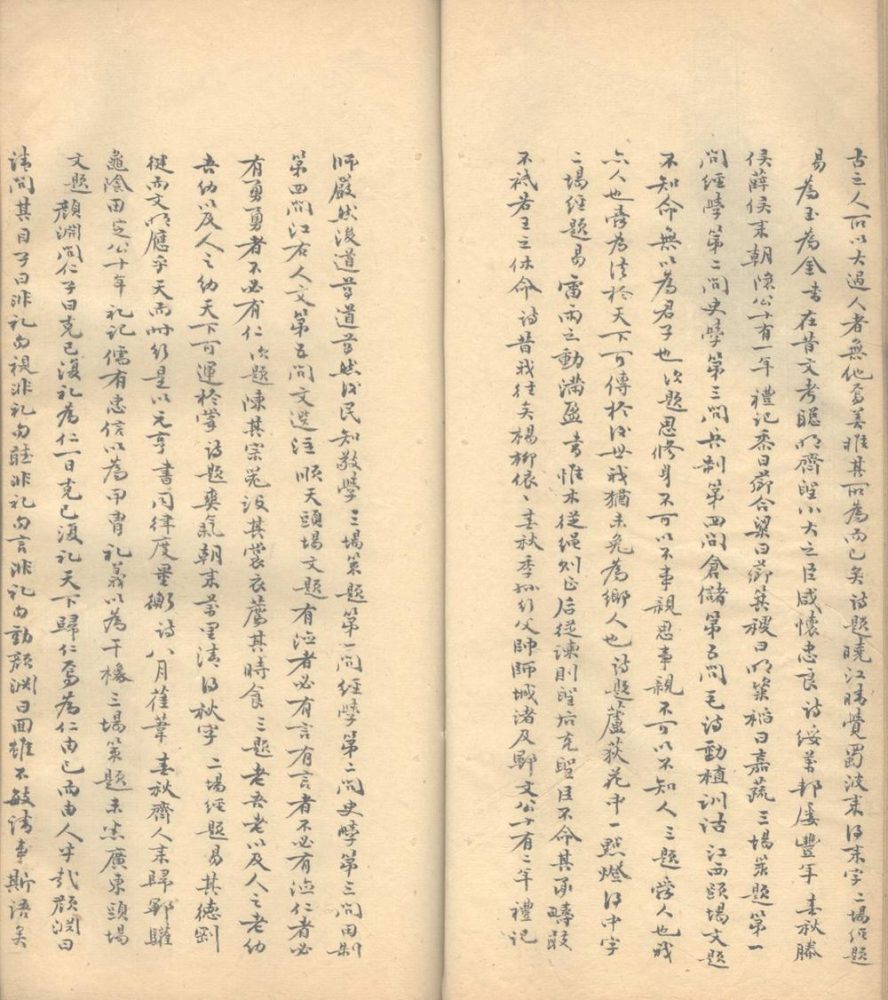 古之人所以大過人者無他焉善推其所為而已矣詩題曉江晴覺蜀波來得來字二場經題
易為玉為金書在昔文考聰明齊聖小大之臣咸懷忠良詩綏萬邦屢豐年春秋滕
侯薛侯來朝隱公十有一年禮記黍曰薌合粱曰薌萁稷曰明粢稻曰嘉蔬三場策題第一
問經學第二問史學第三問兵制第四問倉儲第五問毛詩動植訓詁江西頭場文題
不知命無以為君子也次題思修身不可以不事親思事親不可以不知人三題舜人也我
亦人也舜為法於天下可傳於後世我猶未免為鄉人也詩題蘆荻花中一點燈得中字
二場經題易雷雨之動滿盈書惟木從繩則正后從諫則聖后克聖臣不命其承疇敢
不祗若王之休命詩昔我往矣楊柳依丶春秋季孫行父帥師城諸及鄆文公十有二年禮記
師嚴然後道尊道尊然後民知敬學三場策題第一問經學第二問史學第三問田制
第四問江右人文第五問文選注順天頭場文題有德者必有言有言者不必有德仁者必
有勇勇者不必有仁次題陳其宗器設其裳衣薦其時食三題老吾老以及人之老幼
吾幼以及人之幼天下可運於掌詩題爽氣朝來萬里清得秋字二場經題易其德剛
健而文明應乎天而時行是以元亨書同律度量衡詩八月萑葦春秋齊人來歸鄆讙
龜陰田定公十年礼記儒有忠信以為甲冑礼義以為干櫓三場策題未出廣東頭場
文題顏淵問仁子曰克己復礼為仁一日克己復礼天下歸仁焉為仁由己而由人乎哉顏淵曰
請問其目子曰非礼勿視非礼勿聽非礼勿言非礼勿動顏淵曰回雖不敏請事斯語矣